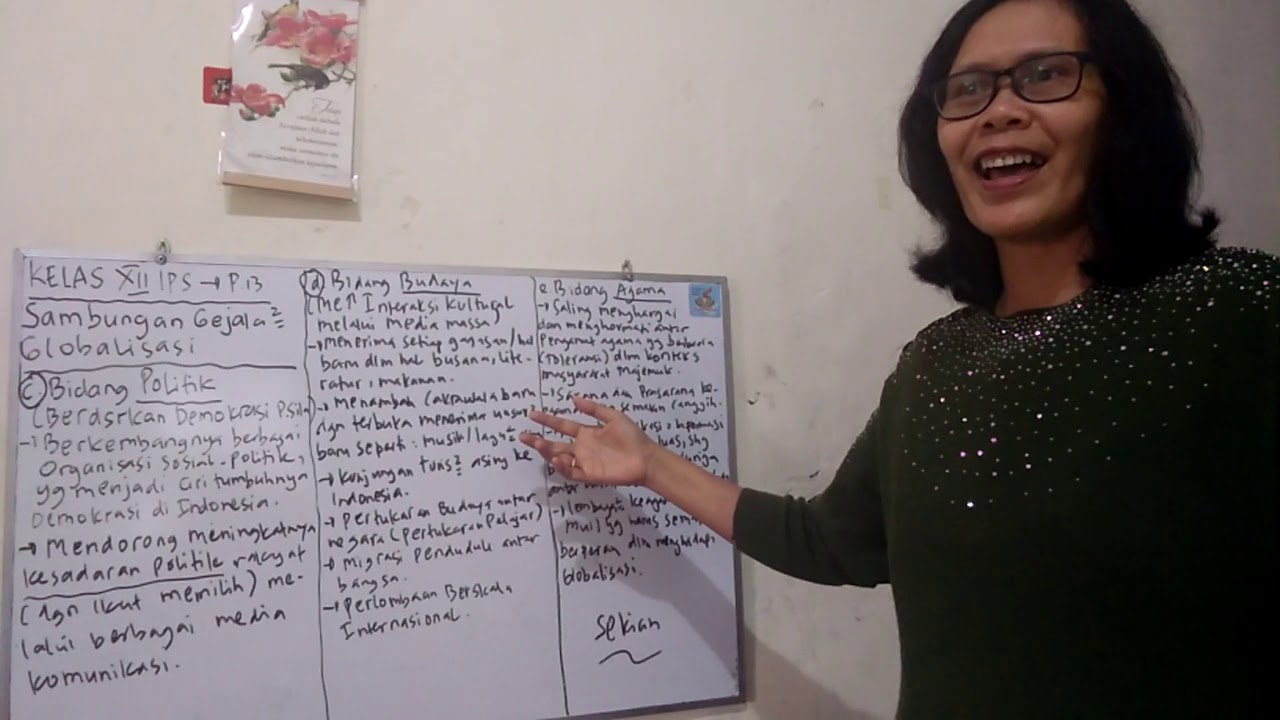 KELAS XII IPS → P.13
Sambungan Gejala²
Globalisasi
C. Bidang Politik
(Berdsrkan Demokrasi Psila)
→ Berkembangnya berbagai
Organisasi Sosial-Politik,
yg menjadi ciri tumbuhnya
Demokrasi di Indonesia.
→ Mendorong meningkatnya
kesadaran politik rakyat
(dgn ikut memilih) me-
lalui berbagai media
komunikasi.
d Bidang Budaya
(Me↑ Interaksi Kultural
melalui media massa)
→ menerima setiap gagasan/hal
baru dlm hal busana, lite-
ratur, makanan.
→ menambah cakrawala baru
dgn terbuka menerima unsur²
baru seperti: musik/lagu²
→ Kunjungan turis² asing ke
Indonesia.
→ Pertukaran Budaya antar
negara (Pertukaran Pelajar)
→ migrasi penduduk antar
bangsa.
→ Perlombaan Berskala
Internasional.
e Bidang Agama
→ Saling menghargai
dan menghormati antar
Penganut agama yg berbeda
(Toleransi) dlm konteks
masyarakat majemuk.
→ Sarana dan Prasarana ke-
semakin canggih.
informasi
luas, shg
antar
→ lembaga²
yg harus
berperan dlm menghadapi
Globalisasi.
Sekian